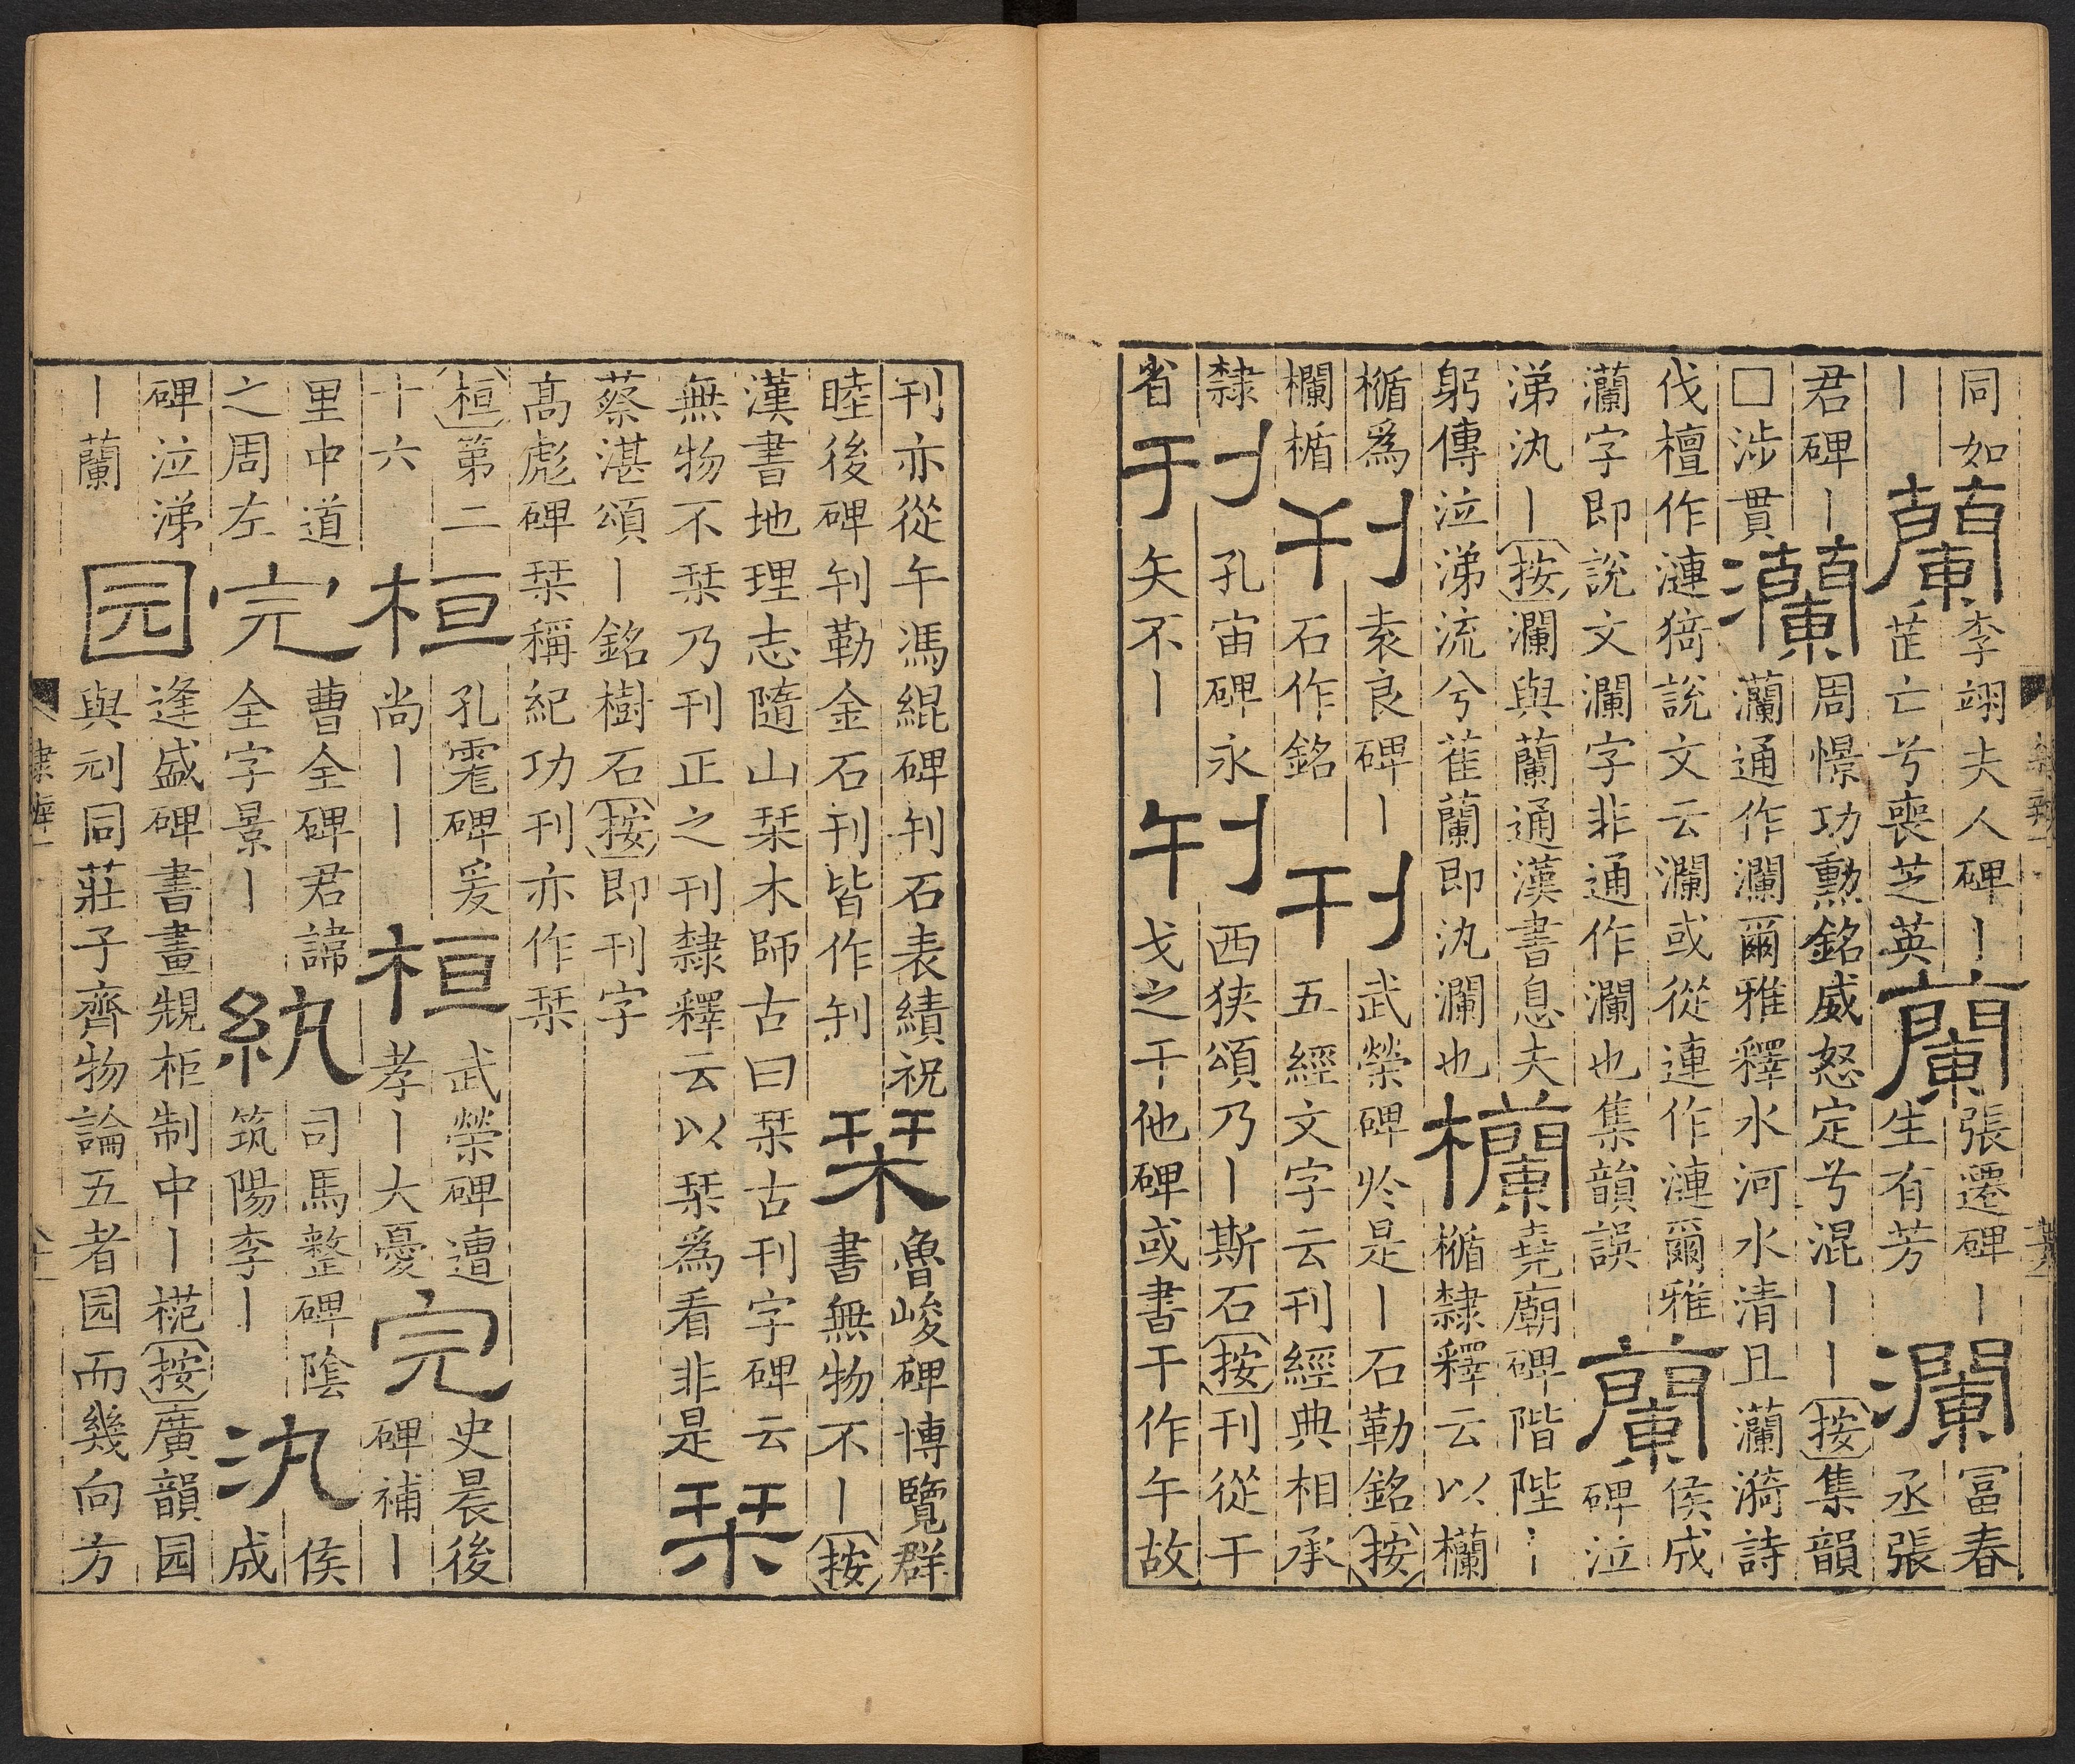 同如
丨
蘭
李翊夫人碑丨
芷亡兮喪芝英
蘭
張遷碑丨
生有芳
瀾
冨春
丞張
君碑丨
□涉貫
灡
周憬功勲銘威怒定兮混丨丨按集韻
灡通作瀾爾雅釋水河水清且灡漪詩
伐檀作漣猗說文云瀾或從連作漣爾雅
灡字即說文瀾字非通作瀾也集韻誤
蘭
侯成
碑泣
涕汍丨按瀾與蘭通漢書息夫
躬傳泣涕流兮萑蘭即汍瀾也
欄
堯廟碑階陛丨
楯隸釋云以欄
楯爲
欄楯
刊
袁良碑丨
石作銘
刊
武榮碑於是丨石勒銘按
五經文字云刊經典相承
隸
省
刊
孔宙碑永
矢不丨
刋
西狹頌乃丨斯石按刊從干
戈之干他碑或書干作午故
刊亦從午馮緄碑刋石表績祝
睦後碑刋勒金石刊皆作刋
栞
魯峻碑博覽群
書無物不丨按
漢書地理志隨山栞木師古曰栞古刊字碑云
無物不栞乃刊正之刊隸釋云以栞爲看非是
栞
蔡湛頌丨銘樹石按即刊字
髙彪碑栞稱紀功刊亦作栞
桓第二
十六
桓
孔霍碑爰
尚丨丨
桓
武榮碑遭
孝丨大憂
完
史晨後
碑補丨
里中道
之周左
完
曹全碑君諱
全字景丨
紈
司馬整碑陰
筑陽李丨
汍
侯
成
碑泣涕
丨蘭
园
逢盛碑書畫規柜制中丨椀按廣韻园
與刓同莊子齊物論五者园而幾向方